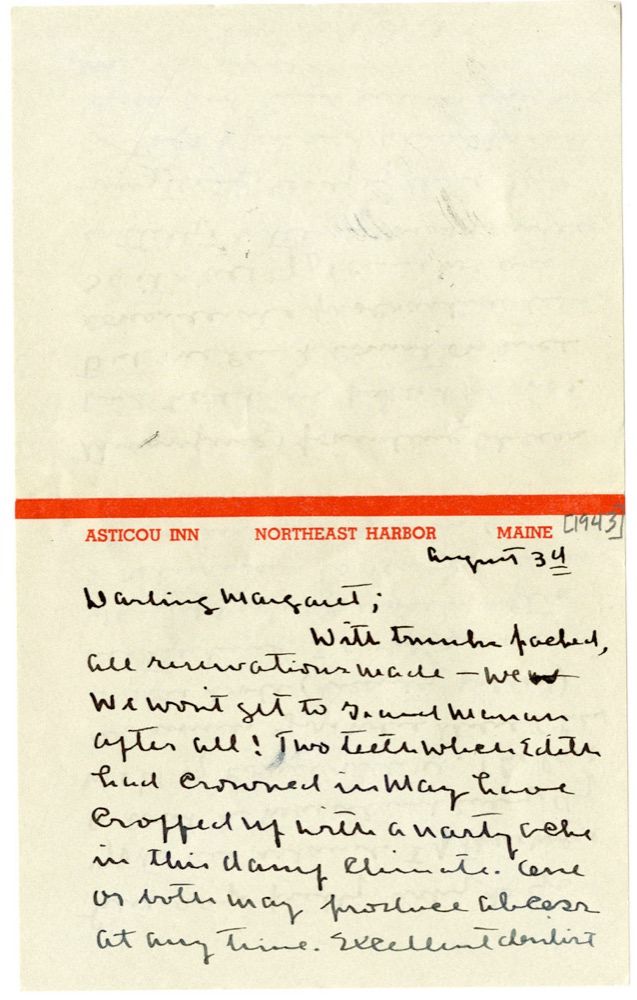 ASTICOU INN NORTHEAST HARBOR MAINE [1943]
August 3d
Darling Margaret;
With trunks packed,
all reservations made – we
We won't get to Grand Manan
after all! Two teeth which Edith
had crowned in May have
cropped up with a nasty ache
in this damp climate. One
or both may produce abcess
at any time. Excellent dentist